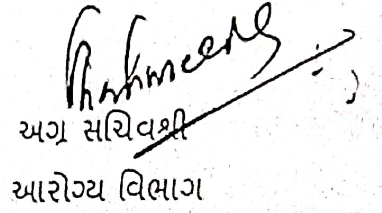 અગ્ર સચિવશ્રી
આરોગ્ય વિભાગ